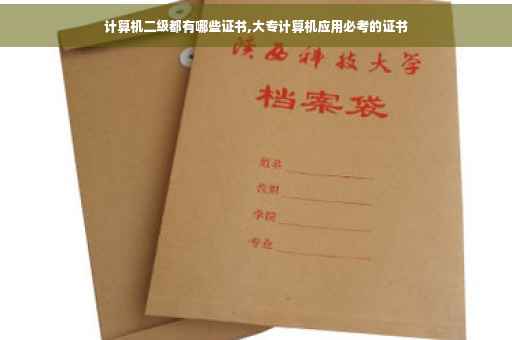 计算机二级都有哪些证书,大专计算机应用必考的证书
陕西科技大学
档案袋
姓名
学院
专业